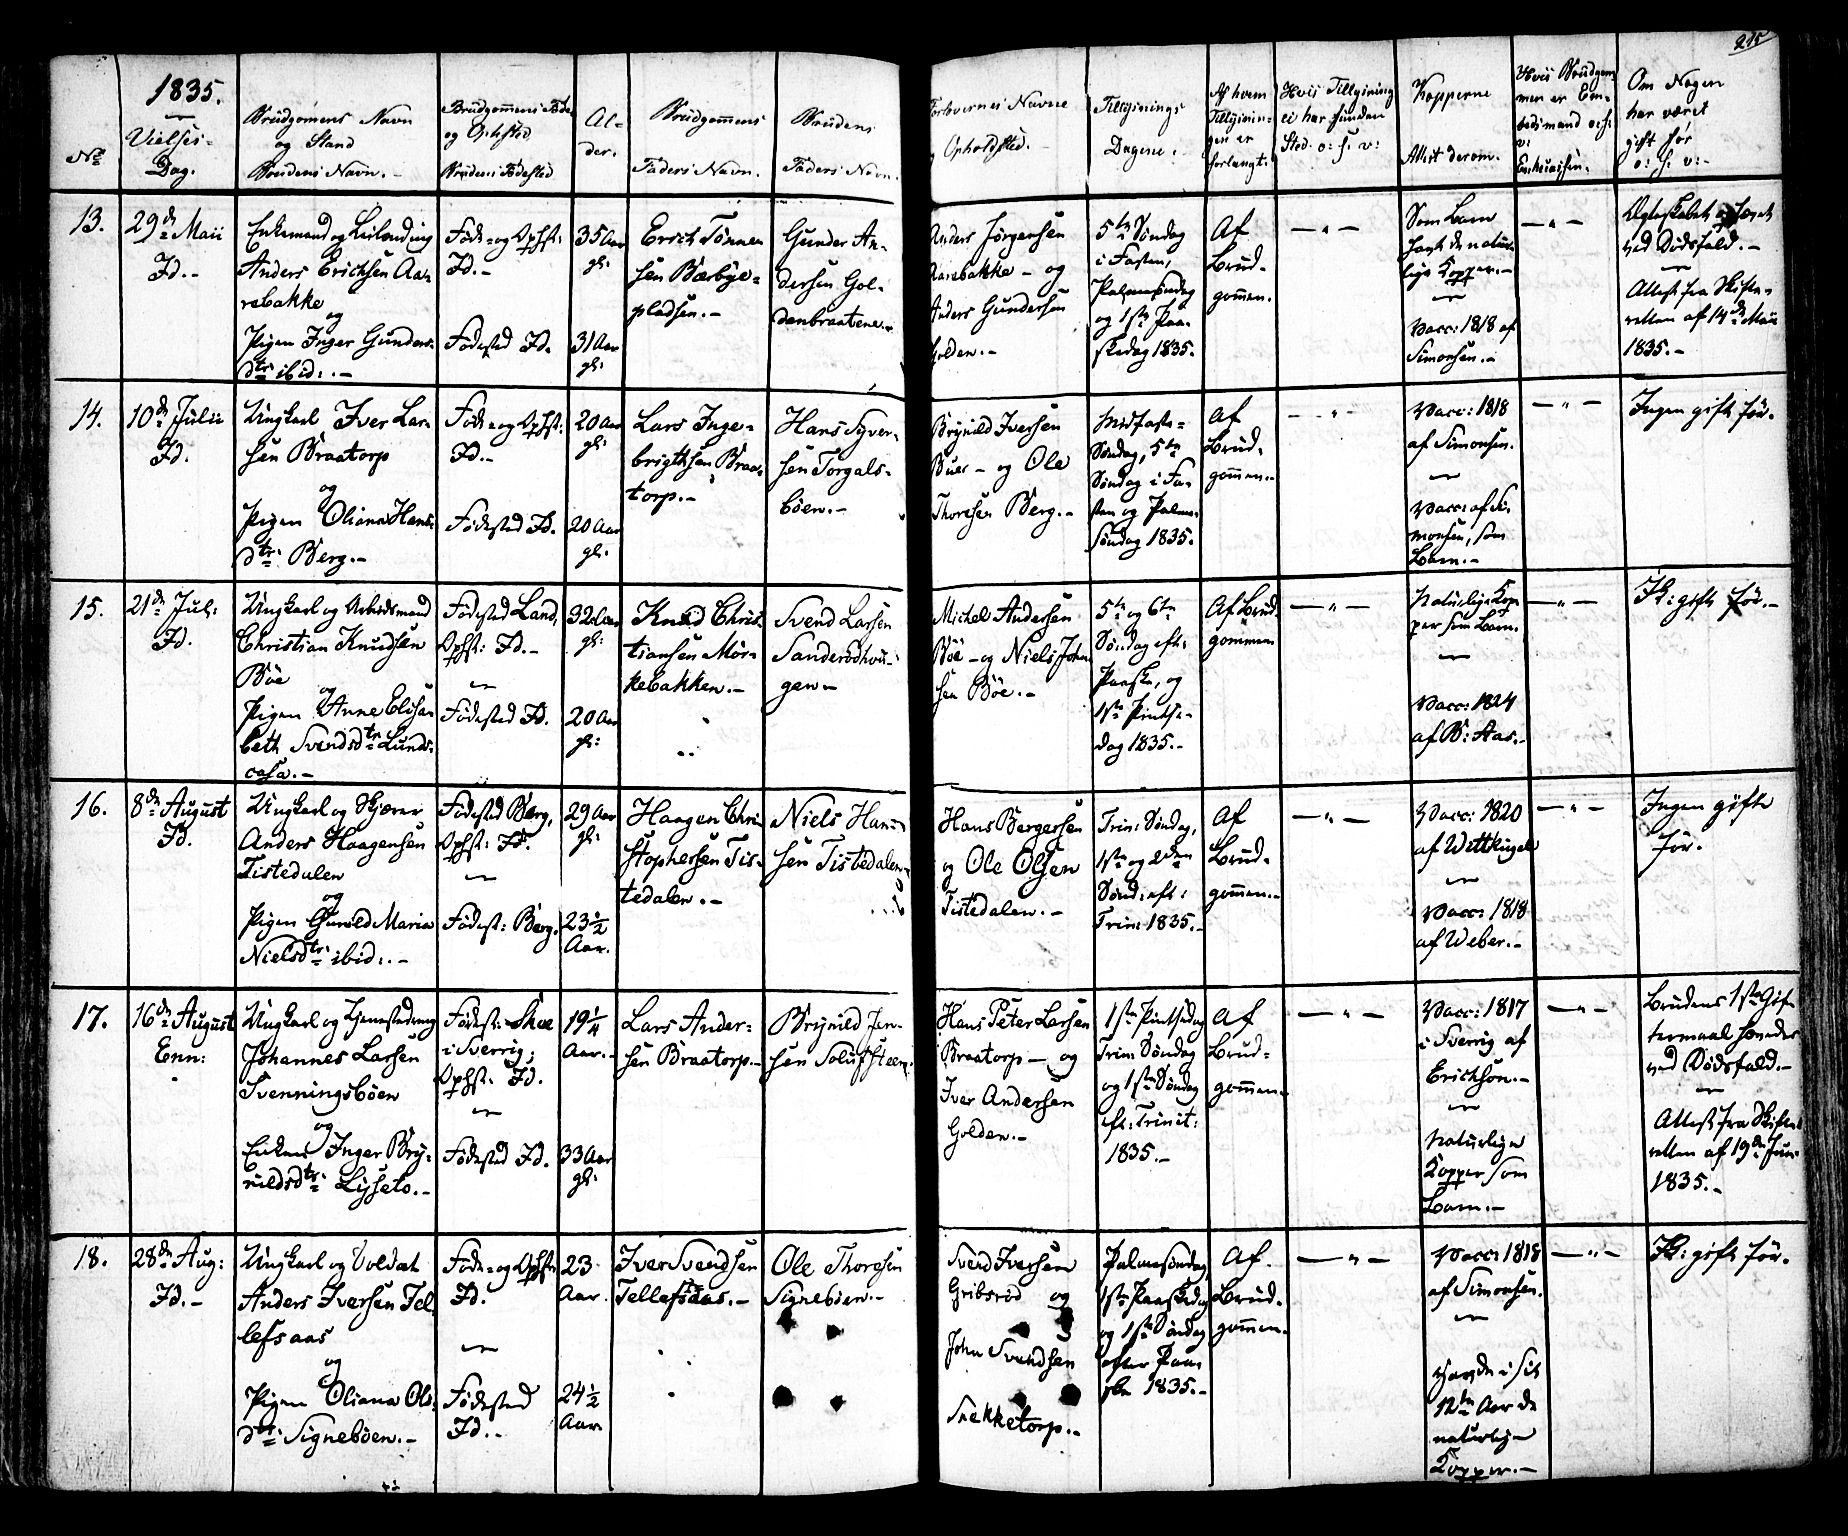 1835.
215
No
Vielses-
Dag.
Brudgomens Navn
og Stand
Brudens Navn.-
Brudgommens Føde
og Ophsted
Brudens Fødested
Al-
der.
Brudgommens
Faders Navn.
Brudens
Faders Navn.
Forlovernes Navne
Opholdsted.-
Tillysnings
Dagene.
Af hvem
Tillysnin-
gen er
forlangt.
Hvis Tillysning
ei har funden
Sted. o: s: v:
Kopperne
Attest derom.
Hvis Brudgom-
men er Em-
bedsmand o: s:
v:
Enkecassen.
Om Nogen
har været
gift før
o: s: v:-
13.
29de Maii
Id.-
Enkemand og Leilænding
Anders Erichsen Aa-
rebakke
og
Pigen Inger Gunders-
dtr ibid:.-
Føde- og Ophst:
Id.-
Fødested Id.
35 Aar
gl:
31 Aar
gl:
Erich Tønne-
sen Bæbye-
pladsen.-
Gunder An-
dersen Gol-
denbraatene.-
Anders Jørgensen
Aarebakke - og
Anders Gundersen
Golden.-
5te Søndag
i Fasten,
Palmesøndag
og 1ste Paa-
skedag 1835.
Af
Brud-
gomen.
- " -
Som Barn
havt de natur-
lige Kopper.-
Vacc: 1818 af
Simonsen.-
- " -
Ægteskabet hævet
ved Dødsfald.-
Attest fra Skifte-
retten af 14de Maii
1835.-
14.
10de Julii
Id.
Ungkarl Iver Lar-
sen Braatorp
og
Pigen Oliana Hans-
dtr: Berg.-
Føde- og Ophst:
Id.-
Fødested Id.
20 Aar
gl:
20 Aar
gl:
Lars Inge-
brigtsen Braa-
torp.-
Hans Syver-
sen Torgals-
böen.-
Brynild Iversen
Buer - og Ole
Thoresen Berg.-
Midfaste-
Søndag, 5te
Søndag i Fa-
sten og Palme-
søndag 1835.
Af
Brud-
gomen.-
- " -
Vacc: 1818
af Simonsen.
Vacc: af Si-
monsen, som
Barn.-
- " -
Ingen gift før.-
15.
21de Jul:
Id.
Ungkarl og Arbeidsmand
Christian Knudsen
Böe
og
Pigen Anne Elisa-
beth Svendsdtr Lunds-
Fødested Land,
Ophst: Id.-
Fødested Id.
32 Aar
gl:
20 Aar
gl:
Knud Chris-
tiansen Mör-
kebakken.-
Svend Larsen
Sanderödhou-
gen-
Michel Andersen
Böe - og Niels John-
sen Böe.-
5te og 6te
Søndag eft:
Paaske, og
1ste Pintse-
dag 1835.-
Af Brud-
gommen
- " -
Naturlige Kop-
per som Barn.
Vacc: 1824
af B: Aas.-
- " -
IK: gift før.-
16.
8de August
Id.
Ungkarl og Skjærer
Anders Haagensen
Tistedalen
og
Pigen Gunild Maria
Nielsdtr ibid:.-
Fødested Berg,
Ophst: Id.
Fødest: Berg.
29 Aar
gl:
23½
Aar.
Haagen Chri-
stophersen Tis-
tedalen.-
Niels Han-
sen Tistedalen-
Hans Bergersen
og Ole Olsen
Tistedalen.-
Trin: Søndag,
1ste og 2den
Sönd: eft:
Trin: 1835.-
Af
Brud-
gommen.-
- " -
Vacc: 1820
af Wittkugel
Vacc: 1818
af Weber.-
- " -
Ingen gifte
før.
17.
16de August
Enn:
Ungkarl og Tjenestedreng
Johannes Larsen
Svenningsböen
og
Enken Inger Bry-
nildsdtr: Lyseto.-
Fødest: Skee
i Sverrig;
Ophst: Id.
Fødested Id.
19¼
Aar.-
33 Aar
gl:
Lars Ander-
sen Braatorp.-
Brynild Jen-
sen Soluffsteen.
Hans Peter Larsen
Braatorp - og
Iver Andersen
Golden.-
1ste Pintsedag
Trin: Søndag
og 1ste Søndag
eft: Trinit:
1835.-
Af
Brud-
gommen.-
- " -
Vacc: 1817
i Sverrig af
Erickson.-
Naturlige
Kopper som
Barn.-
- " -
Brudens 1ste Gif-
termaal hævdes
ved Dødsfald.-
Attest fra Skifte-
retten af 19de Jun:
1835.-
18.
28de Aug:
Id.-
Ungkarl og Soldat
Anders Iversen Tel-
lefsaas
og
Pigen Oliana Ols-
dtr: Signeböen.-
Føde- og Ophst:
Id.
Fødested
Id.-
23
Aar.
24½
Aar.
Iver Svendsen
Tellefsaas.-
Ole Thoresen
Signeböen.-
Svend Iversen
Gribsröd og
John Svendsen
Snekketorp.-
Palmesøndag,
1ste Paaskedag
og 1ste Søndag
efter Paa-
ske 1835.-
Af
Brud-
gommen.
- " -
Vacc: 1818
af Simonsen.
Havde i sit
12te Aar de
naturlige
Kopper.-
- " -
IK: gift før.